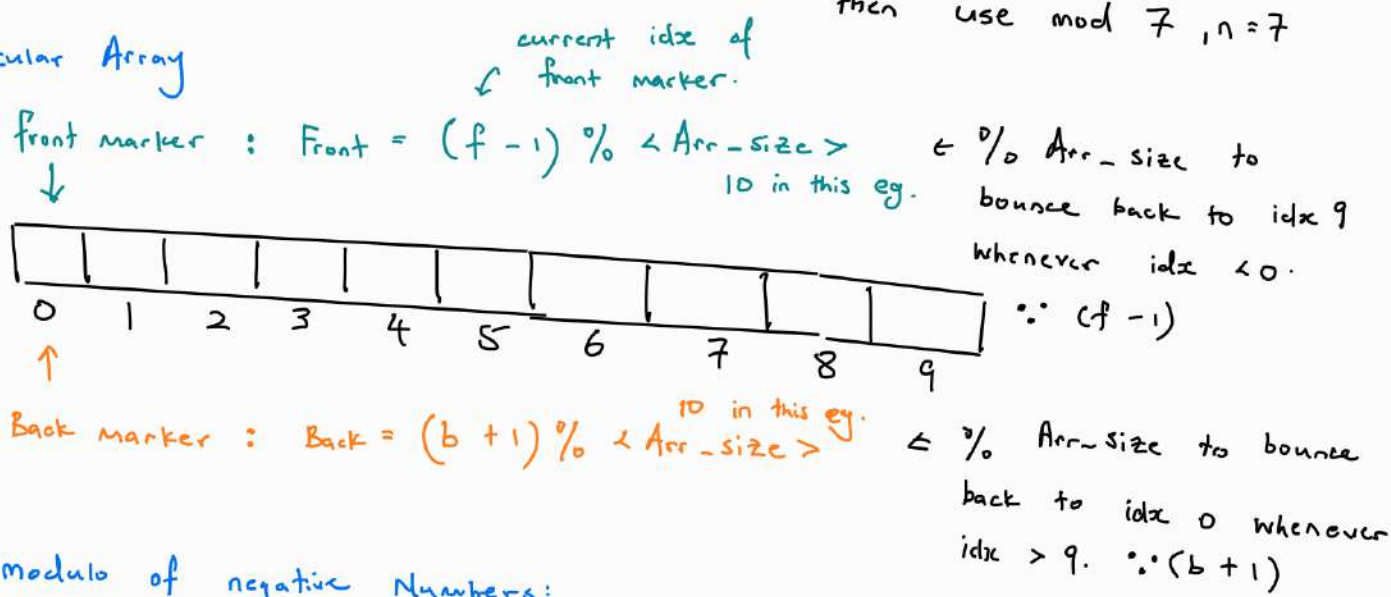 then use mod 7 , n = 7
cular Array
current idx of
front marker.
front marker : Front = (f - 1) % < Arr_size >
10 in this eg.
← % Arr_size to
bounce back to idx 9
whenever idx < 0.
∵ (f - 1)
0 1 2 3 4 5 6 7 8 9
10 in this eg.
Back marker : Back = (b + 1) % < Arr_size >
← % Arr_size to bounce
back to idx 0 whenever
idx > 9. ∵ (b + 1)
modulo of negative Numbers: